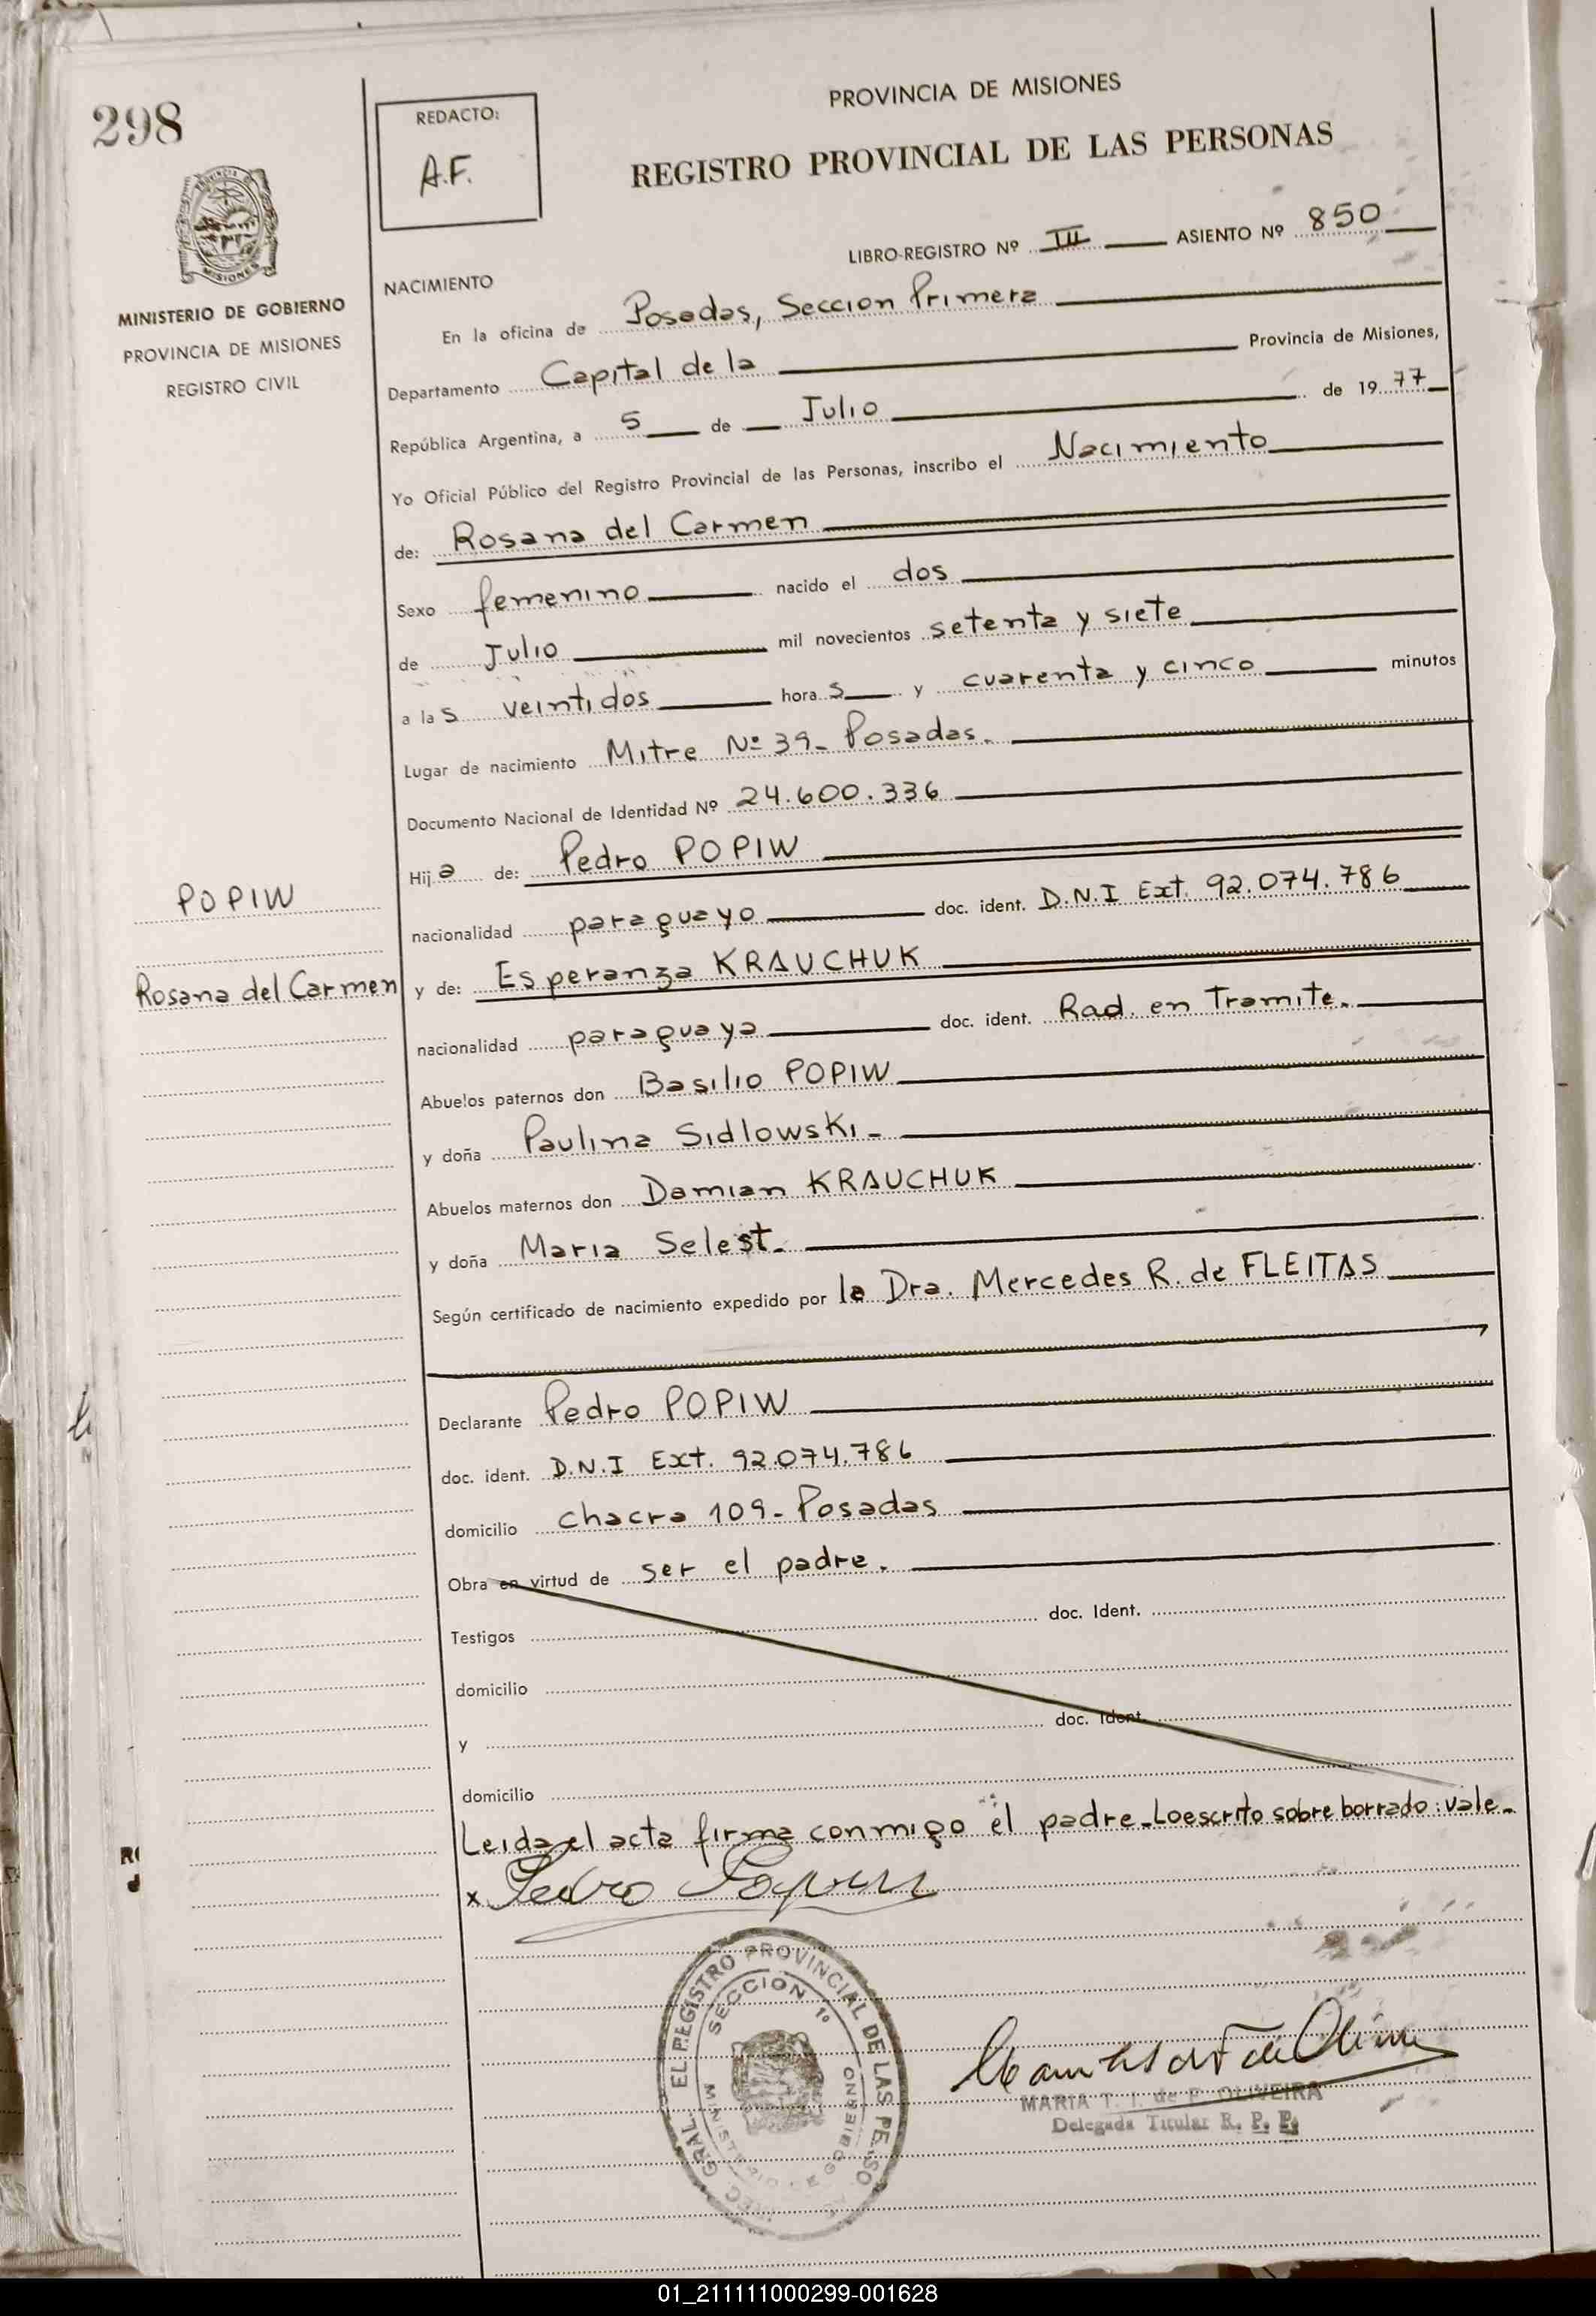 298
REDACTO:
A.F.
PROVINCIA DE MISIONES
REGISTRO PROVINCIAL DE LAS PERSONAS
PROVINCIA DE
MISIONES
MINISTERIO DE GOBIERNO
PROVINCIA DE MISIONES
REGISTRO CIVIL
LIBRO-REGISTRO Nº III ASIENTO Nº 850
NACIMIENTO
En la oficina de Posadas, Seccion Primera
Departamento Capital de la Provincia de Misiones,
República Argentina, a 5 de Julio de 1977
Yo Oficial Público del Registro Provincial de las Personas, inscribo el Nacimiento
de: Rosana del Carmen
Sexo femenino nacido el dos
de Julio mil novecientos setenta y siete
a las veintidos horas y cuarenta y cinco minutos
Lugar de nacimiento Mitre Nº 39- Posadas.
Documento Nacional de Identidad Nº 24.600.336
Hija de: Pedro POPIW
POPIW
nacionalidad paraguayo doc. ident. D.N.I Ext. 92.074.786
Rosana del Carmen
y de: Esperanza KRAUCHUK
nacionalidad paraguaya doc. ident. Rad. en Tramite.
Abuelos paternos don Basilio POPIW
y doña Paulina Sidlowski-
Abuelos maternos don Damian KRAUCHUK
y doña Maria Selest.
Según certificado de nacimiento expedido por la Dra. Mercedes R. de FLEITAS
Declarante Pedro POPIW
doc. ident. D.N.I Ext. 92.074.786
domicilio chacra 109- Posadas
Obra en virtud de ser el padre.
Testigos doc. Ident.
domicilio
y doc. Ident.
domicilio
Leida el acta firma conmigo el padre-Lo escrito sobre borrado: vale-
x Pedro Popiw
GRAL. EL REGISTRO PROVINCIAL DE LAS PERSO
SECCION 1º
MINISTERIO DE GOBIERNO
MARIA T. I. de F. OLIVEIRA
Delegada Titular R. P. P.
01_211111000299-001628